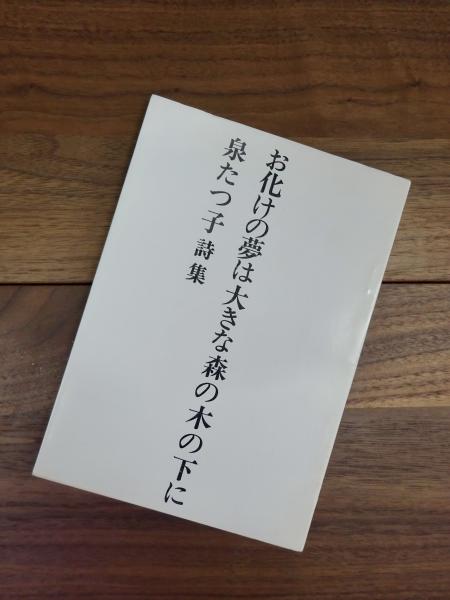 お化けの夢は大きな森の木の下に
泉たつ子 詩集